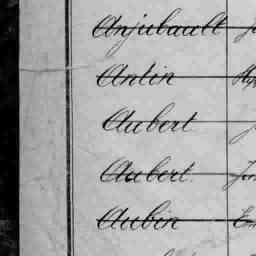 Anjubault
Antin
Aubert
Aubert
Aubin